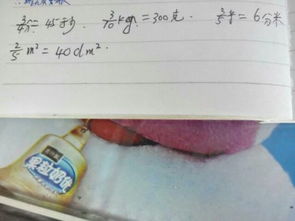 3/4分= 45秒. 3/10kg.=300克. 3/5米=6分米
2/5m²=40dm².
果粒奶优